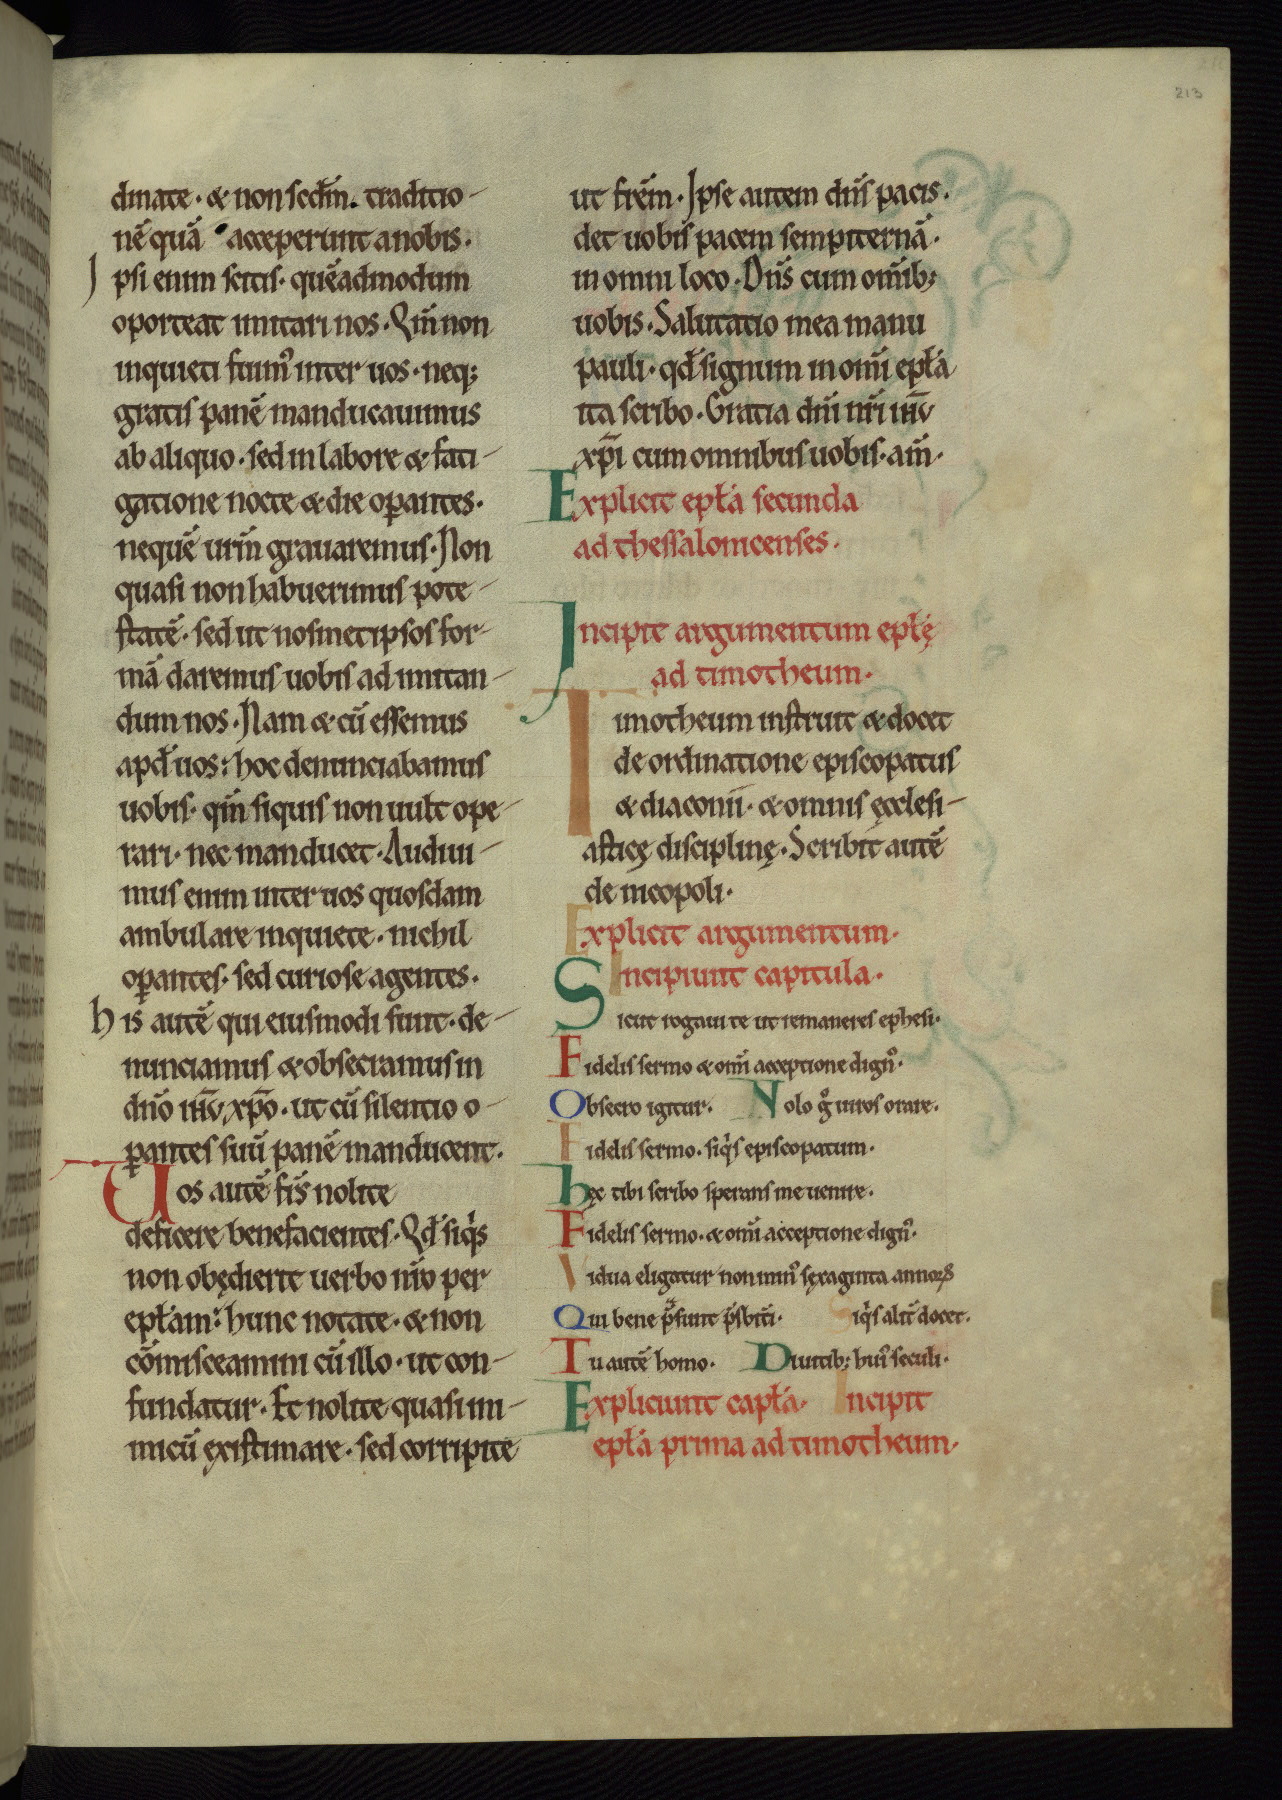 213
dinate · & non secdm̄ . traditio-
nē quā accepērunt a nobis ·
Ipsi enim scitis · quēadmodum
oporteat imitari nos · Qm̄ non
inquieti fuim᾽ inter uos · neq;
gratis panē manducauimus
ab aliquo · sed in labore & fati-
gatione nocte & die oꝑantes ·
nequē ur̄m grauaremus · Non
quasi non habuerimus pote-
statē · sed ut nosmetipsos for-
mā daremus uobis ad imitan-
dum nos · Nam & cū essemus
apđ uos : hoc denunciabamus
uobis · qm̄ siquis non uult ope-
rari · nec manducet · Audiui-
mus enim inter uos quosdam
ambulare inquiete · nichil
oꝑantes · sed curiose agentes ·
his autē qui eiusmodi sunt · de-
nunciamus & obsecramus in
dn̄o ih̄u xp̄o · ut cū silentio o-
ꝑantes suū panē manducent ·
Uos autē fr̄s nolite
deficere benefacientes · Qđ siq̇s
non obędierit uerbo nr̄o per
epł̄am : hunc notate · & non
cōmisceamini cū illo · ut con-
fundatur · Et nolite quasi ini-
micū ęxistimare · sed corripite
ut fr̄em · Ipse autem dn̄s pacis ·
det uobis pacem sempiternā ·
in omni loco · Dn̄s cum om̄ib;
uobis · Salutatio mea manu
pauli · qđ signum in om̄i epł̄a
ita scribo · Gratia dn̄i nr̄i ih̄u
xp̄i cum omnibus uobis · am̄ ·
Explicit epł̄a secunda
ad thessalonicenses ·
Incipit argumentum epł̄ę
ad timotheum ·
Timotheum instruit & docet
de ordinatione episcopatus
& diaconii · & omnis ęcclesi-
asticę disciplinę · Scribit autē
de nicopoli ·
Explicit argumentum ·
Incipiunt capitula ·
Sicut rogaui te ut remaneres ephesi ·
Fidelis sermo & om̄i acceptione dign᾽ ·
Obsecro igitur · Nolo g̊ uiros orare ·
Fidelis sermo · siq̇s episcopatum ·
hęc tibi scribo sperans me uenire ·
Fidelis sermo · & om̄i acceptione dign᾽ ·
Vidua eligatur non min᾽ sęxaginta annoꝝ
Qui bene p̄sunt p̄sbit̄i · Siq̇s alit̄ docet ·
Tu autē homo · Diuitib; hui᾽ seculi ·
Expliciunt capł̄a · Incipit
epł̄a prima ad timotheum ·